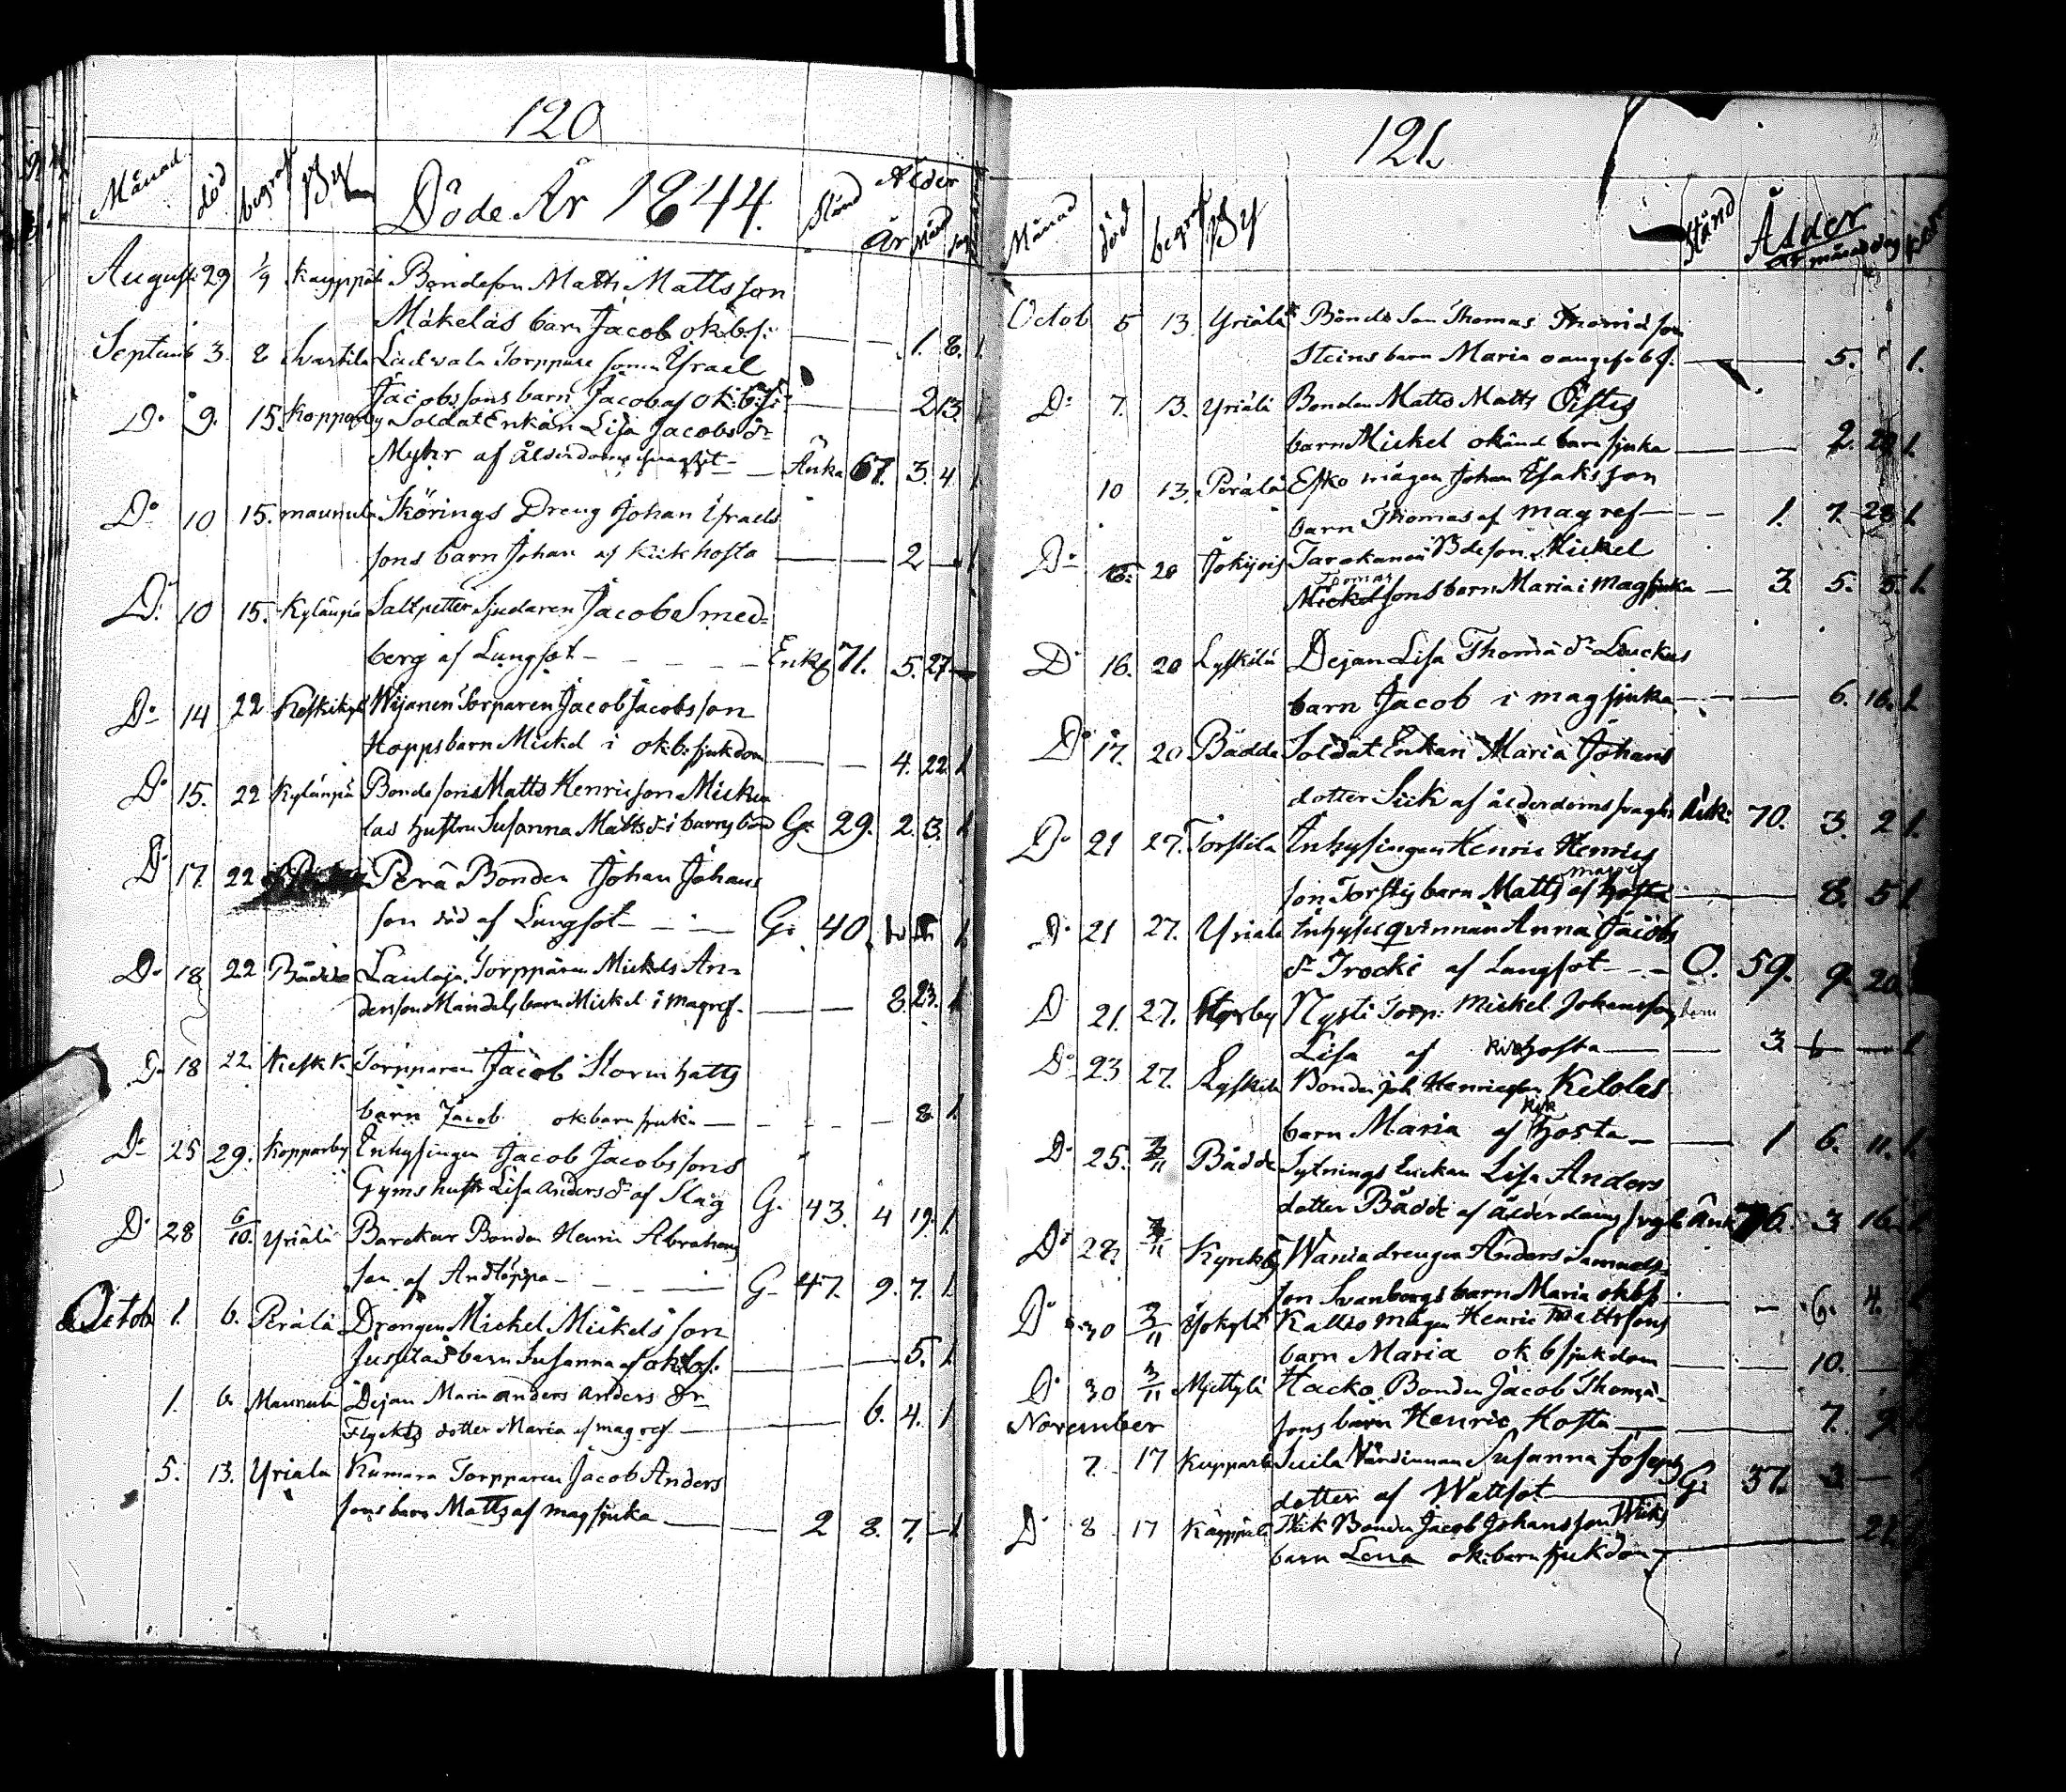 120
Månad död begraf By Döde År 1844. Stånd Ålder
År Månd dag
August 29 1/9 Kauppila Bondeson Matts Mattsson
Mäkeläs barn Jacob ok. b. s: — — 1. 8. 1.
Septemb 3. 8 Svartila Ladvala Torppare sonen Israel
Jacobssons barn Jacob af ok: b: s: — — 2 13. 1
Do 9. 15. Koppar by Soldat Enkan Lisa Jacobs dr
Myhr af Ålderdoms svaghet — Änka 67. 3. 4. 1.
Do 10 15. Maunula Skörings Dreng Johan Israels
sons barn Johan af Kikhosta — — 2 — 1
Do 10 15. Kylänpä Saltpetter Sjudaren Jacob Smed=
berg af Lungsot — — Enkg 71. 5. 27. —
Do 14 22 Keskikyl Wijanen Torparen Jacob Jacobsson
Hopps barn Mickel i okb: sjukdom — — 4. 22. 1
Do 15. 22 Kylänpä Bonde sons Matts Henricson Micku
las hustru Susanna Matts dr i barnsbörd G: 29. 2. 13. 1
Do 17. 22 Perä Bonden Johan Johans
son död af Lungsot — — G: 40. 1.
Do 18 22 Bådde Laulaja Torpparen Mickels An=
derson Mandels barn Mickel i Magref. — — 8. 23. 1.
Do 18 22. Kesk K. Torpparen Jacob Stormhatts
barn Jacob ok: barn sjuka — — — 8. 1.
Do 25 29. Kopparby Inhysingen Jacob Jacobssons
Gyms hustr Lisa Anders dr af Slag G. 43. 4 19. 1.
Do 28 6/10. Yriälä Barckar Bonden Henric Abrahams
son af Andtäppa — — G. 47. 9. 7. 1.
Octob 1. 6. Perälä Drengen Mickel Mickelsson
Jussilas barn Susanna af okb. s: — — 5. 1.
1. 6. Maunula Dejan Maria Anders Anders dr
Flyckts dotter Maria af magref — — 6. 4. 1
5. 13. Yriala Kumara Torpparen Jacob Anders
sons barn Matts af magsjuka — — 2 8. 7. — 1
121.
Månad död begraf By Stånd Ålder
År månad dag
Octob 5 13. Yriälä Bonde Son Thomas Thomasson
Steins barn Maria o angifv b s. — — 5. 1.
Do 7. 13. Yriälä Bonden Matts Matts Öistis
barn Mickel okänd barn sjuka — — 2. 29. 1.
10 13. Perälä Esko mågen Johan Isaksson
barn Thomas af magref — — 1. 7. 28. 1.
Do 16. 20 Jokijois Tarokanen Bdeson Mickel
Thomas
Mickelsons barn Maria i Magsjuka — 3. 5. 5. 1.
Do 16. 20 Lyskilä Dejan Lisa Thomä dr Louckus
barn Jacob i magsjuka — — 6. 16. 1
Do 17. 20 Bådda Soldat Enkan Maria Johans
dotter Siik af ålderdoms svaghe Änk: 70. 3. 2 1.
Do 21 27. Torstila Inhysingen Henric Henrics
magref
son Torstis barn Matts af hosta — — 8. 5 1.
Do 21 27. Yriala Inhyses qvinnan Anna Jacobs
dr Trocki af Lungsot — — O. 59. 9. 20.
Do 21. 27. Storby Nysti Torp: Mickel Johanssons barn
Lisa af Kikhosta — — 3. 6 — 1.
Do 23 27. Lyskila Bonden Joh Henricson Kelolas
Kik
barn Maria af hosta — — 1 6. 11. 1.
Do 25. 3/11 Bådde Sytnings Enckan Lisa Anders
dotter Bådde af ålderdoms svaghe Änk 76. 3 16. 1
Do 28. 3/11 Kyrckby Wania drengen Anders Samuels
son Svanborgs barn Maria okbs — — 6. 4. 1
Do 30 3/11 Isokylä Kallio Mågen Henric Mattssons
barn Maria ok b sjukdom — — 10. —
Do 30 3/11 Myttylä Hacko Bonden Jacob Thomä=
sons barn Henric Hosta — — 7. 9
November
7. 17 Kopparb Suila Värdinnan Susanna Josephs
dotter af Wattsot — G: 37. 3 —
Do 8 17 Käyppälä Wik Bonden Jacob Johansson Wiks
barn Lena ok: barn sjukdom — 21.